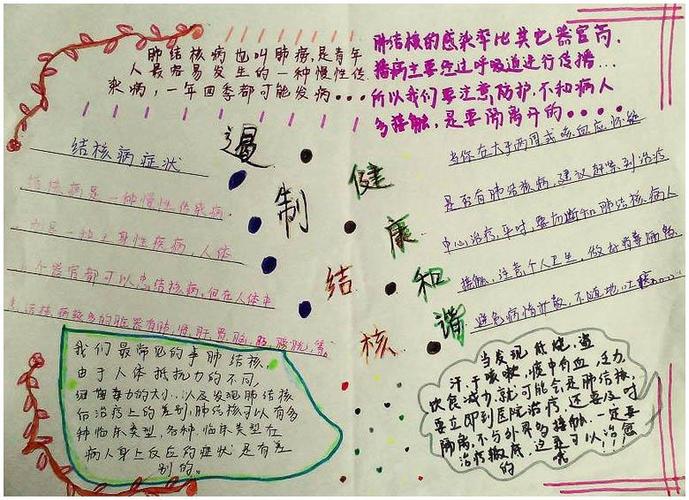 肺结核病也叫肺痨,是青年
人最容易发生的一种慢性传
染病,一年四季都可能发病•••
肺结核的感染率比其它器官高,
播病主要经过呼吸道进行传播...
所以我们要注意防护,不和病人
多接触,是要隔离开的••••
遏制结核
健康和谐
结核病症状
结核病是一种慢性传染病.
也是一种全身性疾病,人体
个器官都可以患结核病,但在人体中
结核病较多的脏器有肺,肾,肝,胃,脑,肠,膀胱,等,
当你在大于两周或痰血应怀疑
是否有肺结核病,建议赶紧到治疗
中心治疗,平时,要间断和肺结核病人
接触,注意个人卫生,做好消毒隔离
避免病情扩散,不随地吐痰......
我们最常见的事肺结核
由于人体抵抗力的不同,
细菌毒力的大小...以及发现肺结核
后治疗上的差别,肺结核可以有多
种临床类型,各种临床类型在
病人身上反应的症状是有差
别的.
当发现低烧,盗
汗,干咳嗽,痰中有血,乏力
饮食减少,就可能会是肺结核,
要立即到医院治疗,还要及时
隔离,不与外界多接触.一定要
治疗彻底,这是可以治愈
的